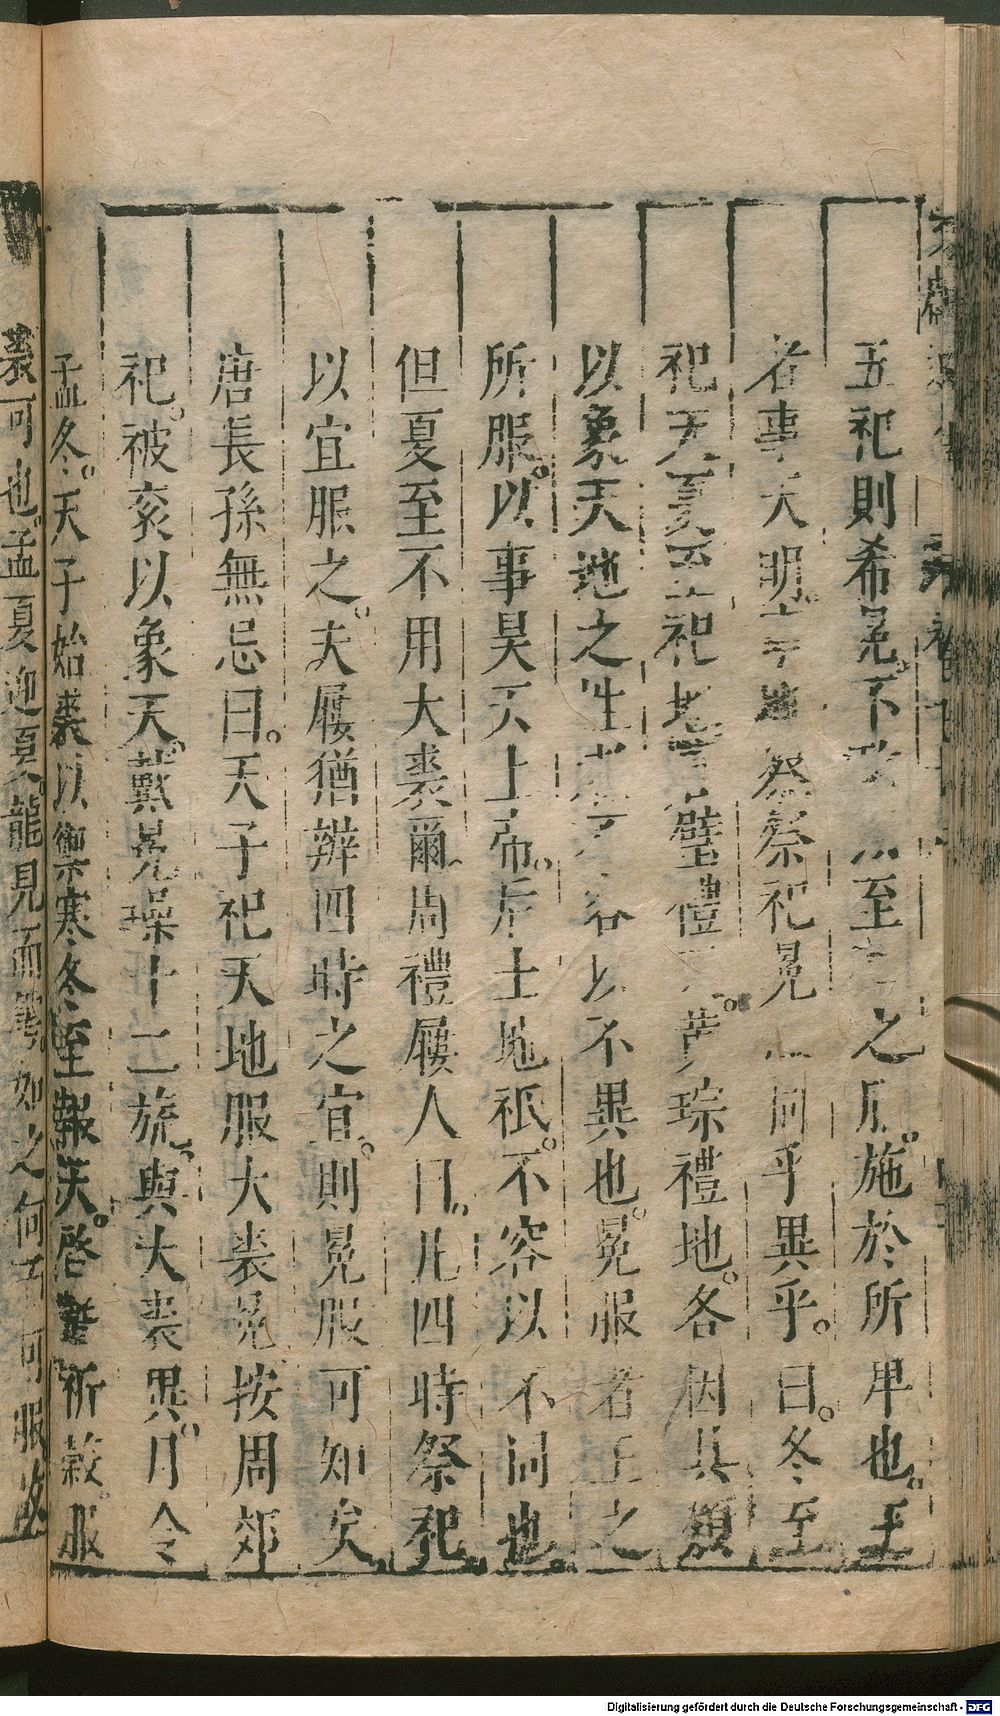 五祀則希冕。不 至 之 施於所 也。王
者事天明 地 祭祭祀冕 同乎異乎。曰。冬至
祀天夏至祀地 璧禮天。黃琮禮地。各因其類
以象天地之性 以不異也。冕服者王之
所服。以事昊天上帝。后土地祇。不容以不同也。
但夏至不用大裘爾。周禮屨人曰。凡四時祭祀
以宜服之。夫屨猶辨四時之宜。則冕服可知矣。
唐長孫無忌曰。天子祀天地服大裘冕按周郊
祀。被衮以象天。戴冕璪十二旒。與大裘異。月令
孟冬。天子始裘以禦寒冬至報天。啓蟄祈穀服
裘可也孟夏迎夏。龍見而雩。如之何 可服。故
Digitalisierung gefördert durch die Deutsche Forschungsgemeinschaft - DFG